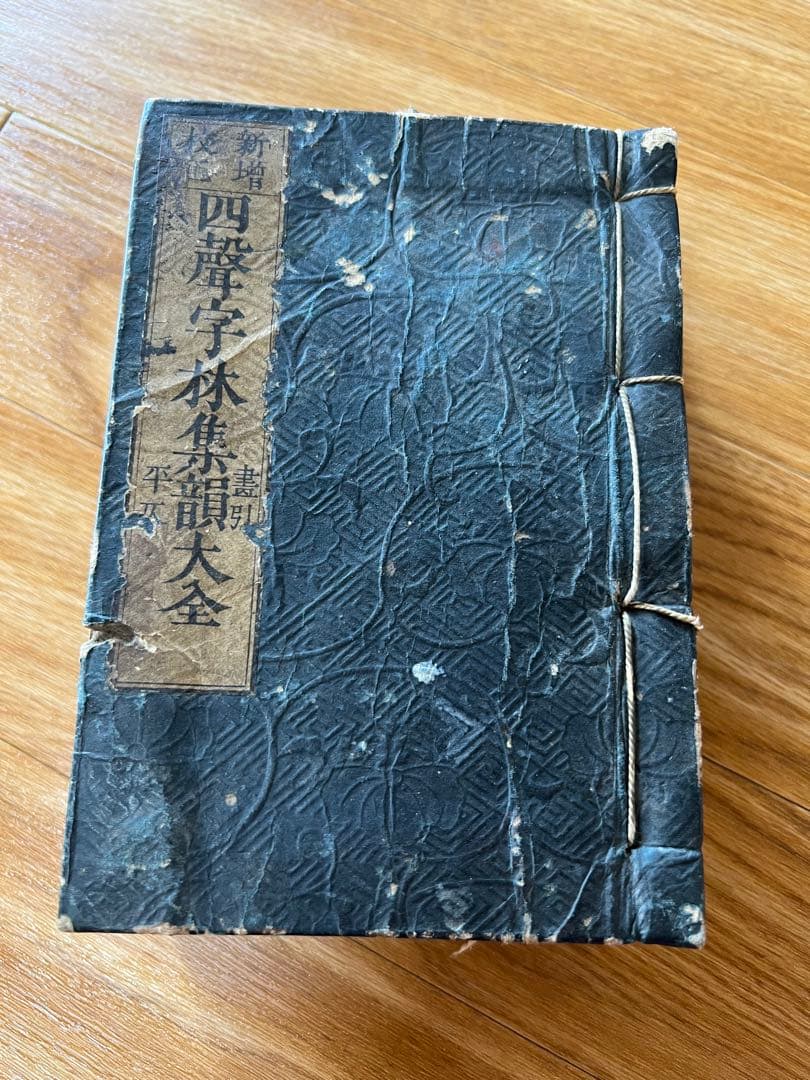 新增
校
四聲字林集韻大全
畫引
平